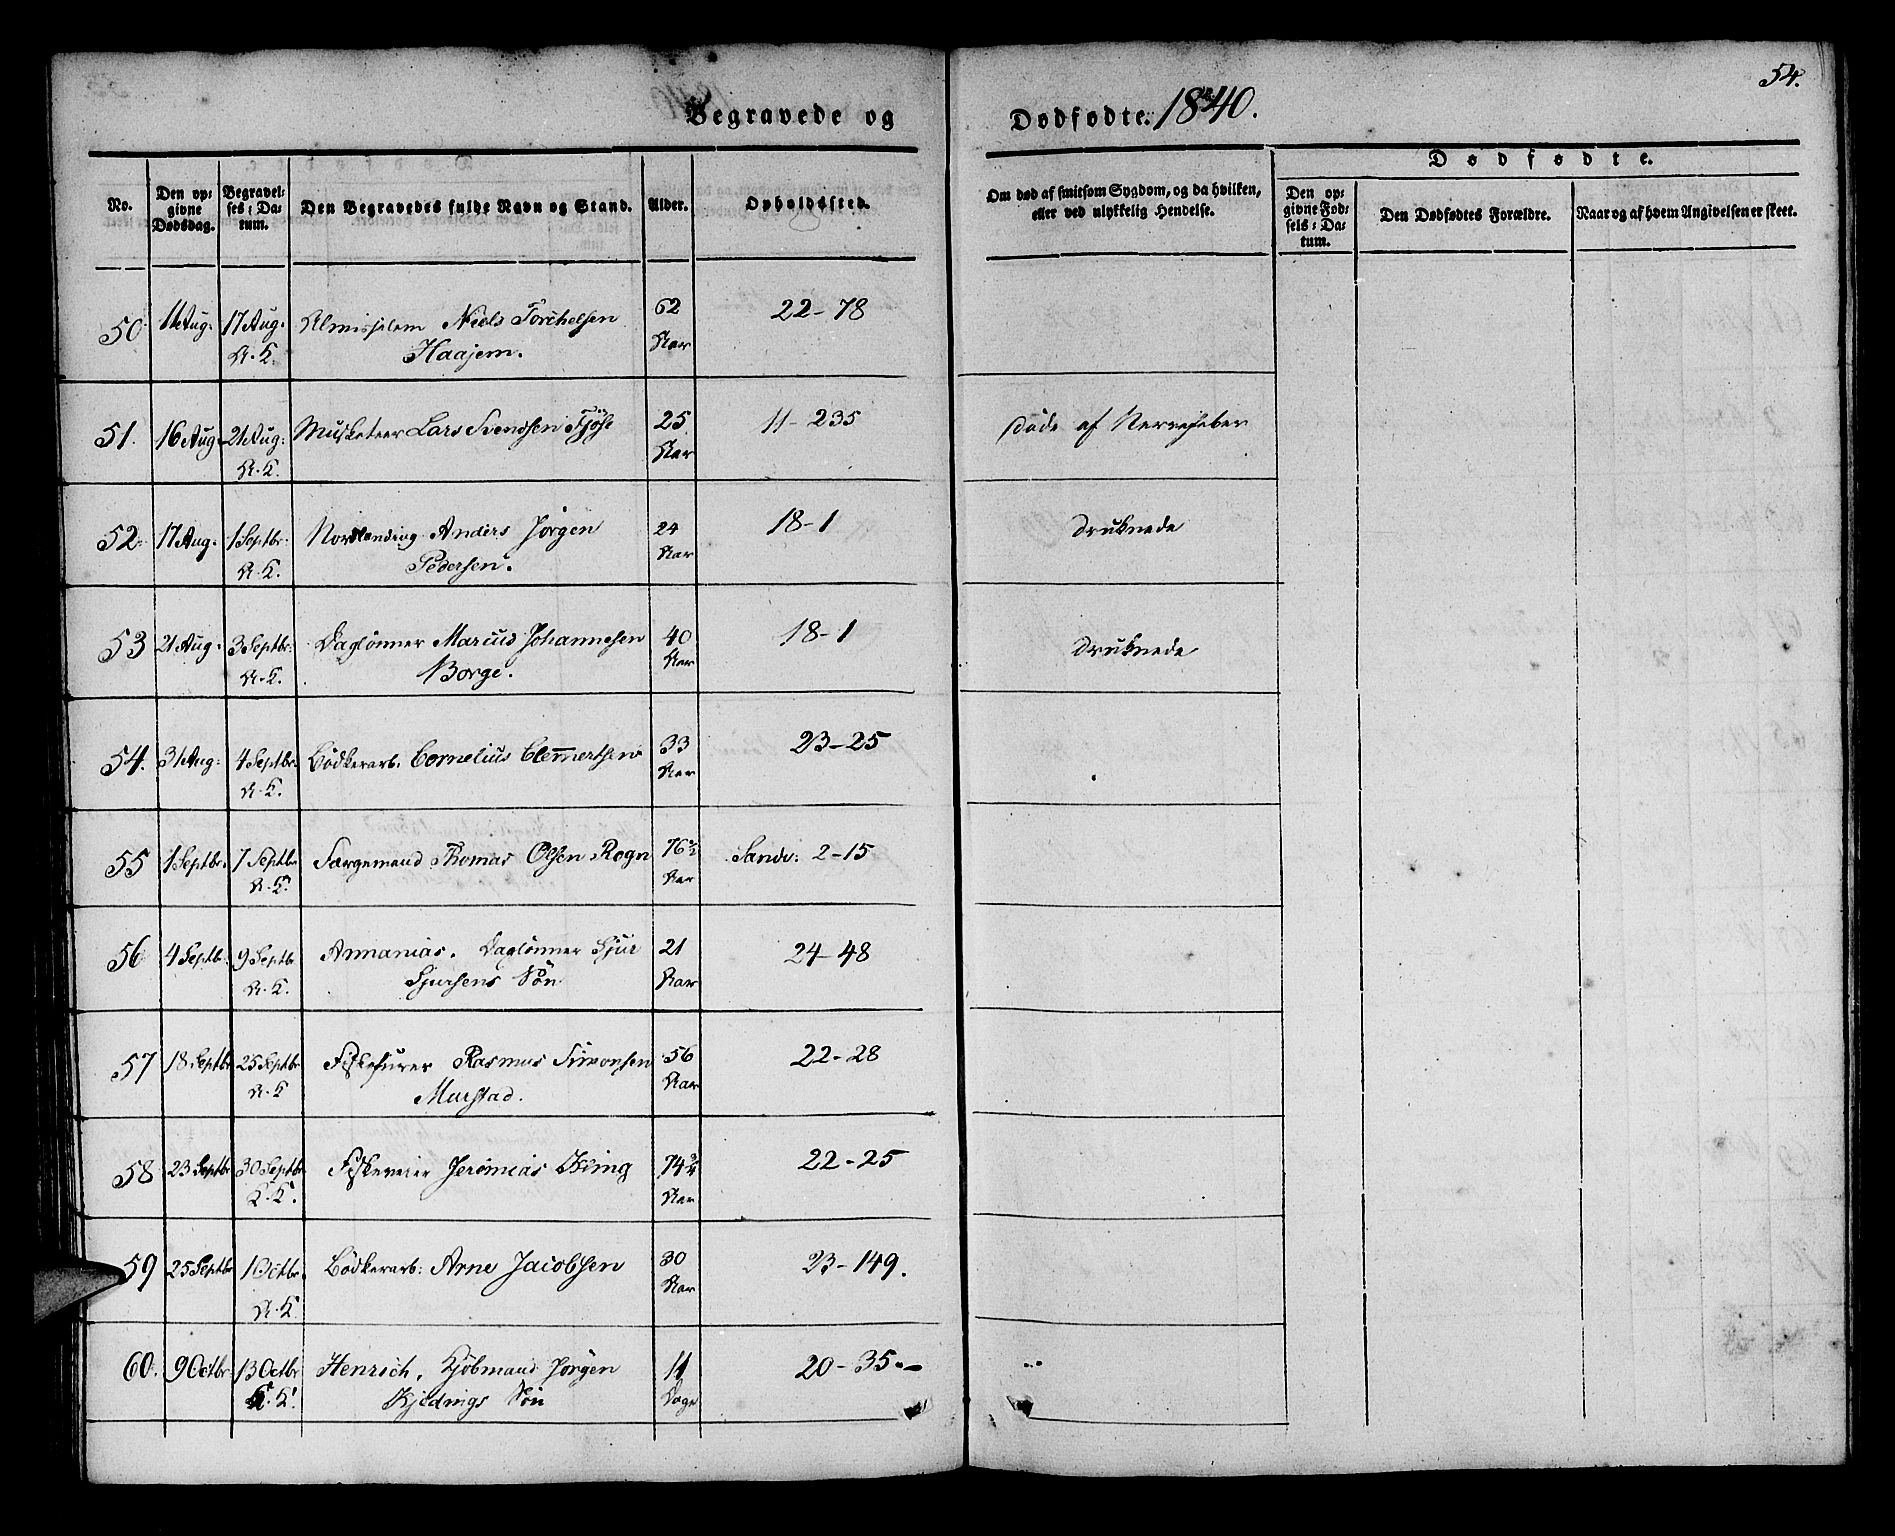 54.
Begravede og Dødfødte. 1840.
No.
Den op-
givne
Dødsdag.
Begravel-
ses-Da-
tum.
Den Begravedes fulde Navn og Stand.
Alder.
Opholdssted.
Om død af smitsom Sygdom, og da hvilken,
eller ved ulykkelig Hendelse.
Dødfødte.
Den op-
givne Fød-
sels-Da-
tum.
Den Dødfødtes Forældre.
Naar og af hvem Angivelsen er skeet.
50. 11 Aug. 17 Aug. Almisselem Niels Torchelsen 62 22-78
Haajem. Aar
51. 16 Aug. 21 Aug: Musketeer Lars Svendsen Tjöse 25 11-235 døde af Nervefeber
Aar
52. 17 Aug. 1 Septbr: Nordlending Anders Jörgen 24 18-1 druknede
Pedersen. Aar
53 21 Aug. 3 Septbr: Daglönner Marcus Johannesen 40 18-1 druknede
Borge. Aar
54. 31 Aug: 4 Septbr. Bödkerarb. Cornelius Clemmertsen 33 23-25
Aar
55 1 Septbr. 7 Septbr Sørgemand Thomas Olsen Rogn 76½ Sandv: 2-15
Aar
56 4 Septbr. 9 Septbr Annanias. Daglönner Sjur 21 24-48
Sjursens Sön Aar
57 18 Septbr 25 Septbr Rasmus Simonsen 56 22-28
Murstad. Aar
58 23 Septbr 30 Septbr Jeremias 74¾ 22-25
Aar
59 25 Septbr 1 Octbr. Bödkerarb: Arne Jacobsen 30 23-149.
Aar
60. 9 Octbr 13 Octbr Henrich, Kjöbmand Jörgen 11 20-35.
Kjeldings Sön Dage